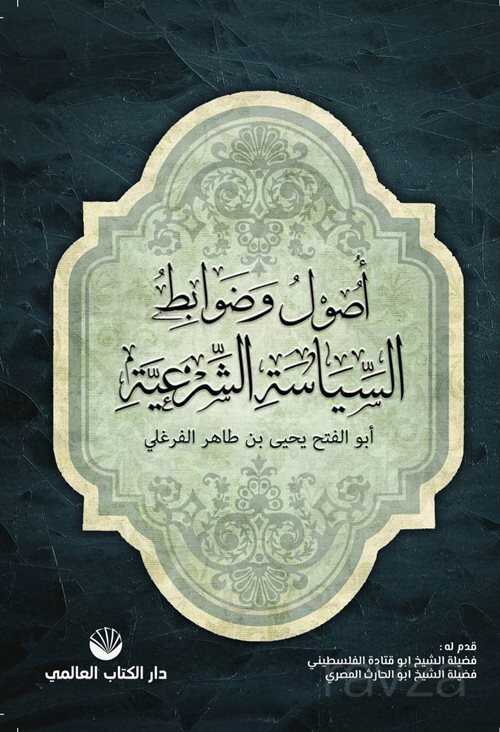 أُصُولُ وَضَوَابِطُ
السِّيَاسَةِ الشَّرْعِيَّةِ
أبو الفتح يحيى بن طاهر الفرغلي
قدم له :
فضيلة الشيخ ابو قتادة الفلسطيني
فضيلة الشيخ ابو الحارث المصري
دار الكتاب العالمي
ravza